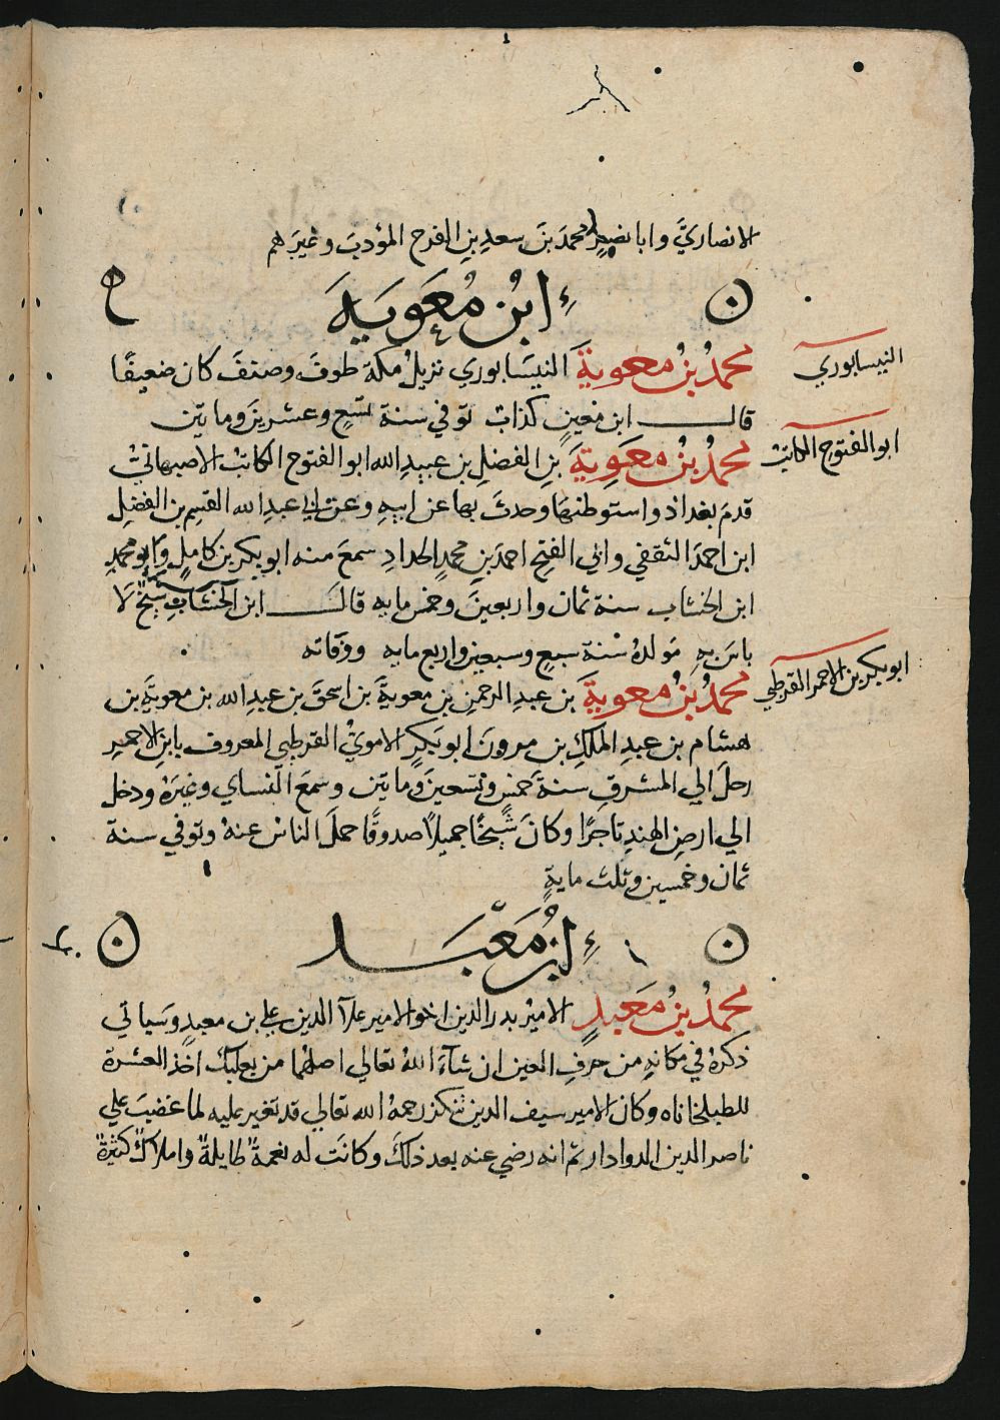 الانصاريَّ وابا نصرٍ محمدَ بنَ سعدِ بنِ الفرح المؤدبَ وغيرَهم
ابنُ مُعَوِيَةَ
محمدُ بنُ معوية النيسَابوري نزيلُ مكة طوفَ وصنفَ كان ضعيفًا
النيسابوري
قالـــ ابن معينٍ كذابٌ توفي سنة تسعٍ وعشرينَ وماىتين
محمدُ بنُ معَوِية بنِ الفضلِ بن عبيدِ الله ابو الفتوح الكاتبُ الاصبهانيُّ
ابو الفتوح الكاتبُ
قدمَ بغداذ واستوطنهَا وحدثَ بها عن ابيهِ وعن ابي عبدِ الله القسمِ بن الفضلِ
ابن احمدَ الثقفي وابي الفتحِ احمدَ بنِ محمدٍ الحدادِ سمعَ منه ابو بكر بن كاملٍ وابو محمدِ
ابن الخشاب سنة ثمان واربعينَ وخمس مايه قالَـــ ابن الخشابِ شيخٌ لا
باسَ بهِ مَولدهُ سنة سبعٍ وسبعين واربع مايه ووفاته
محمدُ بنُ معوية بن عبدِ الرحمنِ بن معويةَ بن اسحقَ بن عبدِ الله بن معويةَ بن
ابو بكر بن الاحمر القرطبي
هشام بن عبدِ الملكِ بن مرونَ ابو بَكرٍ الامويُّ القرطبي المعروف بابنِ الاحمرِ
رحلَ الي المشرقِ سنة خمسٍ وتسعينَ وماىتين وسمعَ النساي وغيرَهُ ودخل
الي ارضِ الهندِ تاجرًا وكانَ شَيخًا جميلًا صدوقًا حملَ الناسُ عنهُ وتوفي سنة
ثمان وخمسين وثلث مايةٍ
ابنُ مَعْبَـــد
محمدُ بنُ مَعبدٍ الاميرُ بدر الدين اخو الامير علآ الدين علي بن معبدٍ وسَياتي
ذكرهُ في مكانهِ من حرفِ العين ان شآءَ اللهُ تعالي اصلهُما من بعلبك اخذ العشرة
للطبلخاناه وكان الامير سيف الدين تنكز رحمهُ الله تعالي قد تغير عليه لما غضبَ علي
ناصر الدين الدوادار ثم انه رضي عنه بعد ذلكَ وكانَت له نعمةٌ طايلةٌ واملاكٌ كثيرةٌ